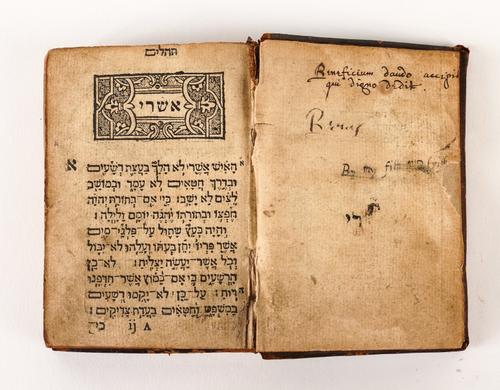 תהלים
אשרי
א האיש אשר לא הלך בעצת רשעים א
ובדרך חטאים לא עמד ובמושב
לצים לא ישב: כי אם בתורת יהוה
חפצו ובתורתו יהגה יומם ולילה:
והיה כעץ שתול על־פלגי־מים
אשר פריו יתן בעתו ועלהו לא־יבול
וכל אשר־יעשה יצליח: לא־כן
הרשעים כי אם־כמוץ אשר־תדפנו
רוח: על־כן לא־יקמו רשעים
במשפט וחטאים בעדת צדיקים:
כי A ij
Beneficium dando accipit
qui digno dedit.